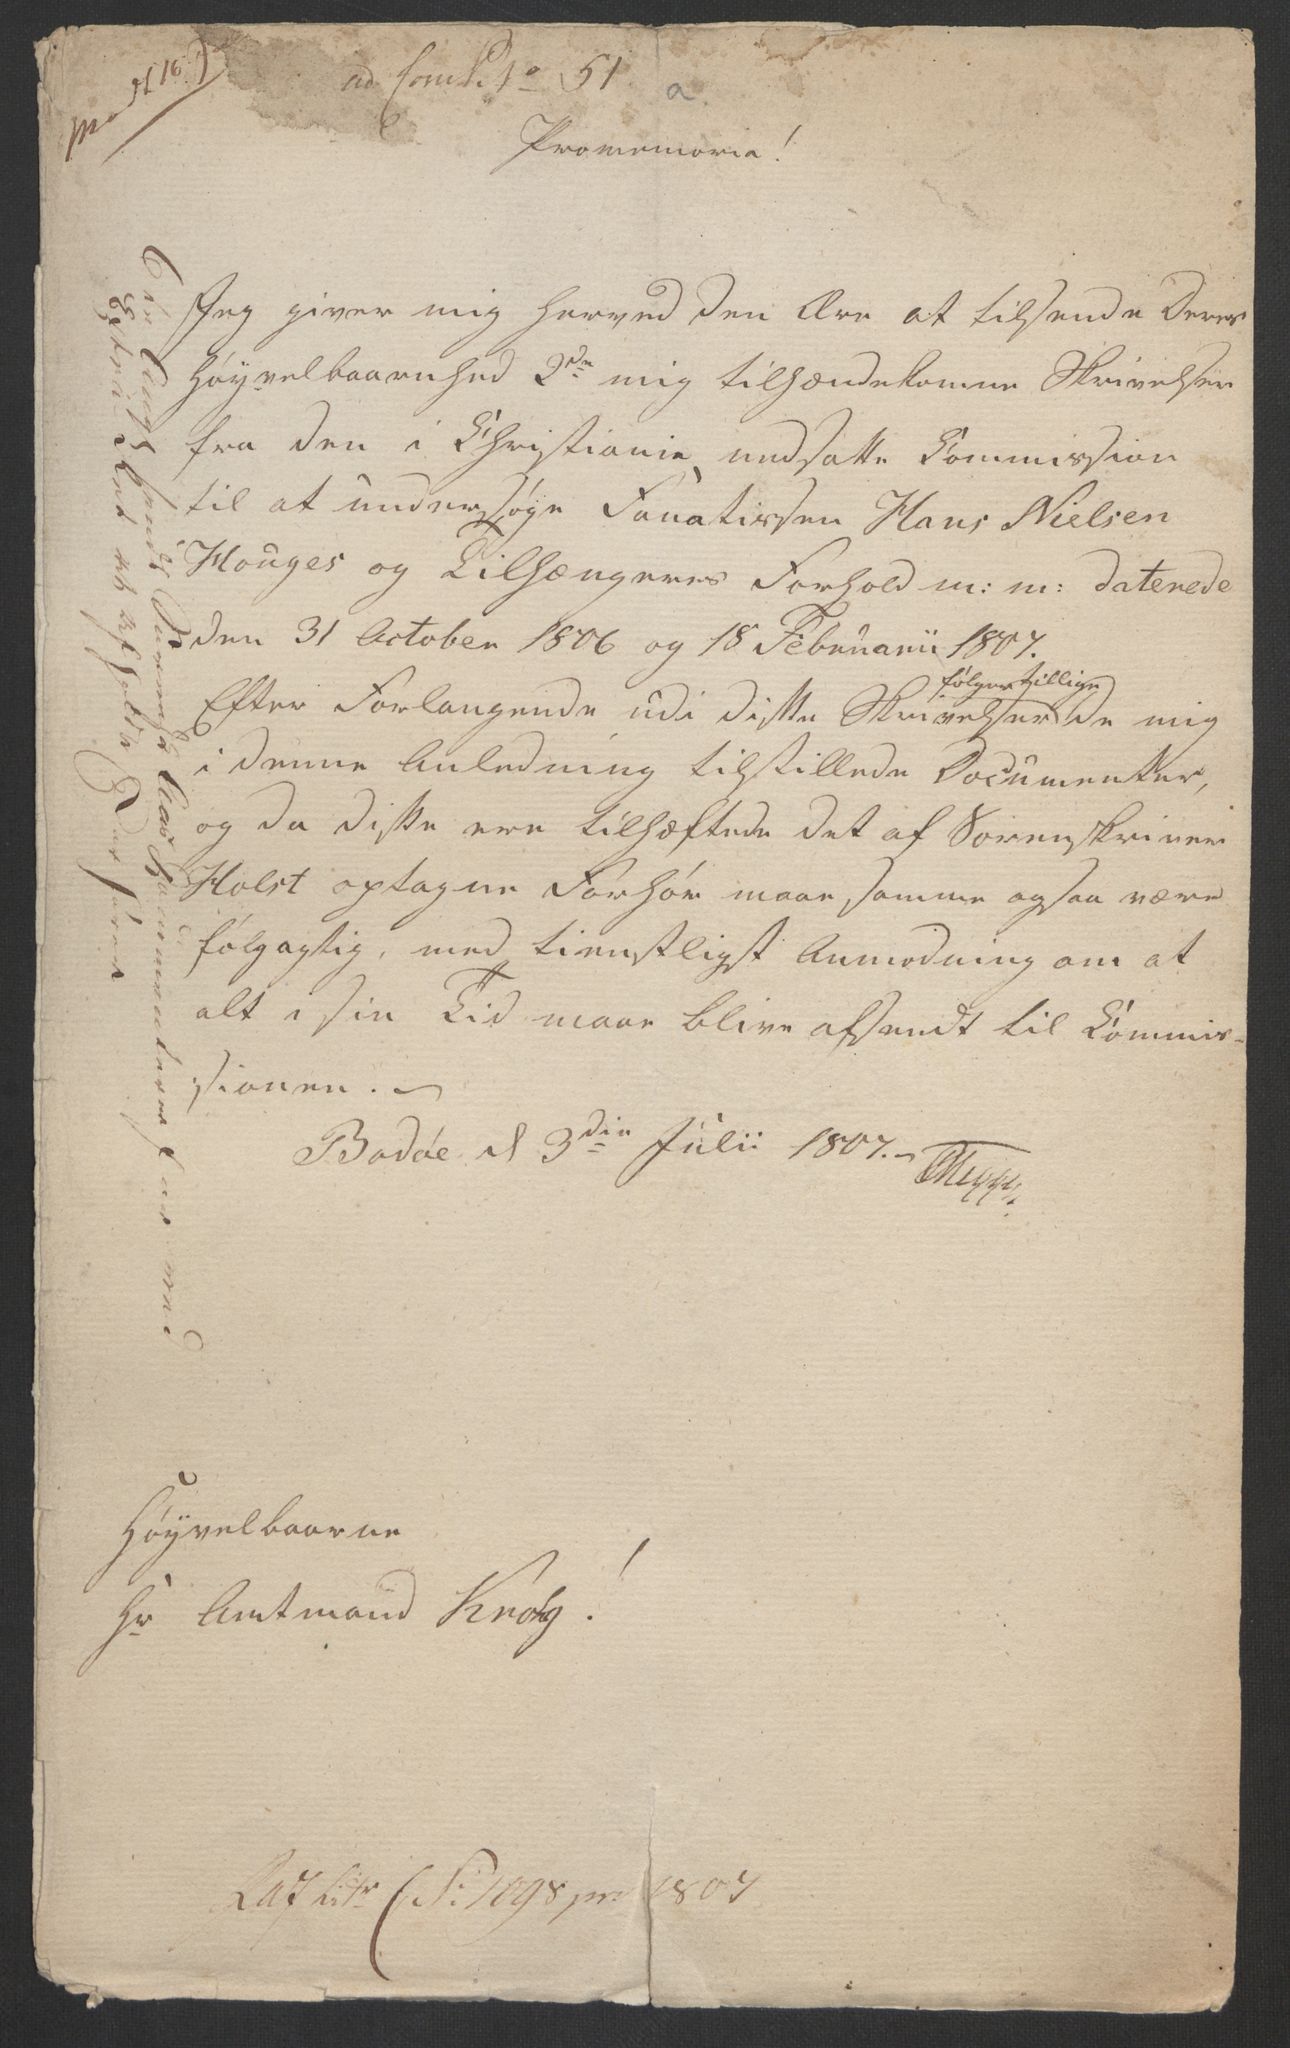 ad Com: No 51.
a.
Promemoria!
Jeg giver mig herved den Ære at tilsende Deres
Høyvelbaarnhed 2de mig tilhændekomne Skrivelser
fra den i Christiania nedsatte Commission
til at undersøge Fanatissen Hans Nielsen
Houges og Tilhængeres Forhold m: m: daterede
den 31 October 1806 og 18 Februarii 1807.
følger tillige
Efter Forlangende udi disse Skrivelser de mig
i denne Anledning tilstillede Documenter,
og da disse ere tilhæftede det af Sorenskriver
Holst optagne Forhør maae samme ogsaa være
følgagtig, med tienstligst Anmodning om at
alt i sin Tid maae blive afsendt til Commis-
sionen.
Bodøe d 3die Julii 1807.
Høyvelbaarne
Hr Amtmand Krog!
No 1098 pro 1807